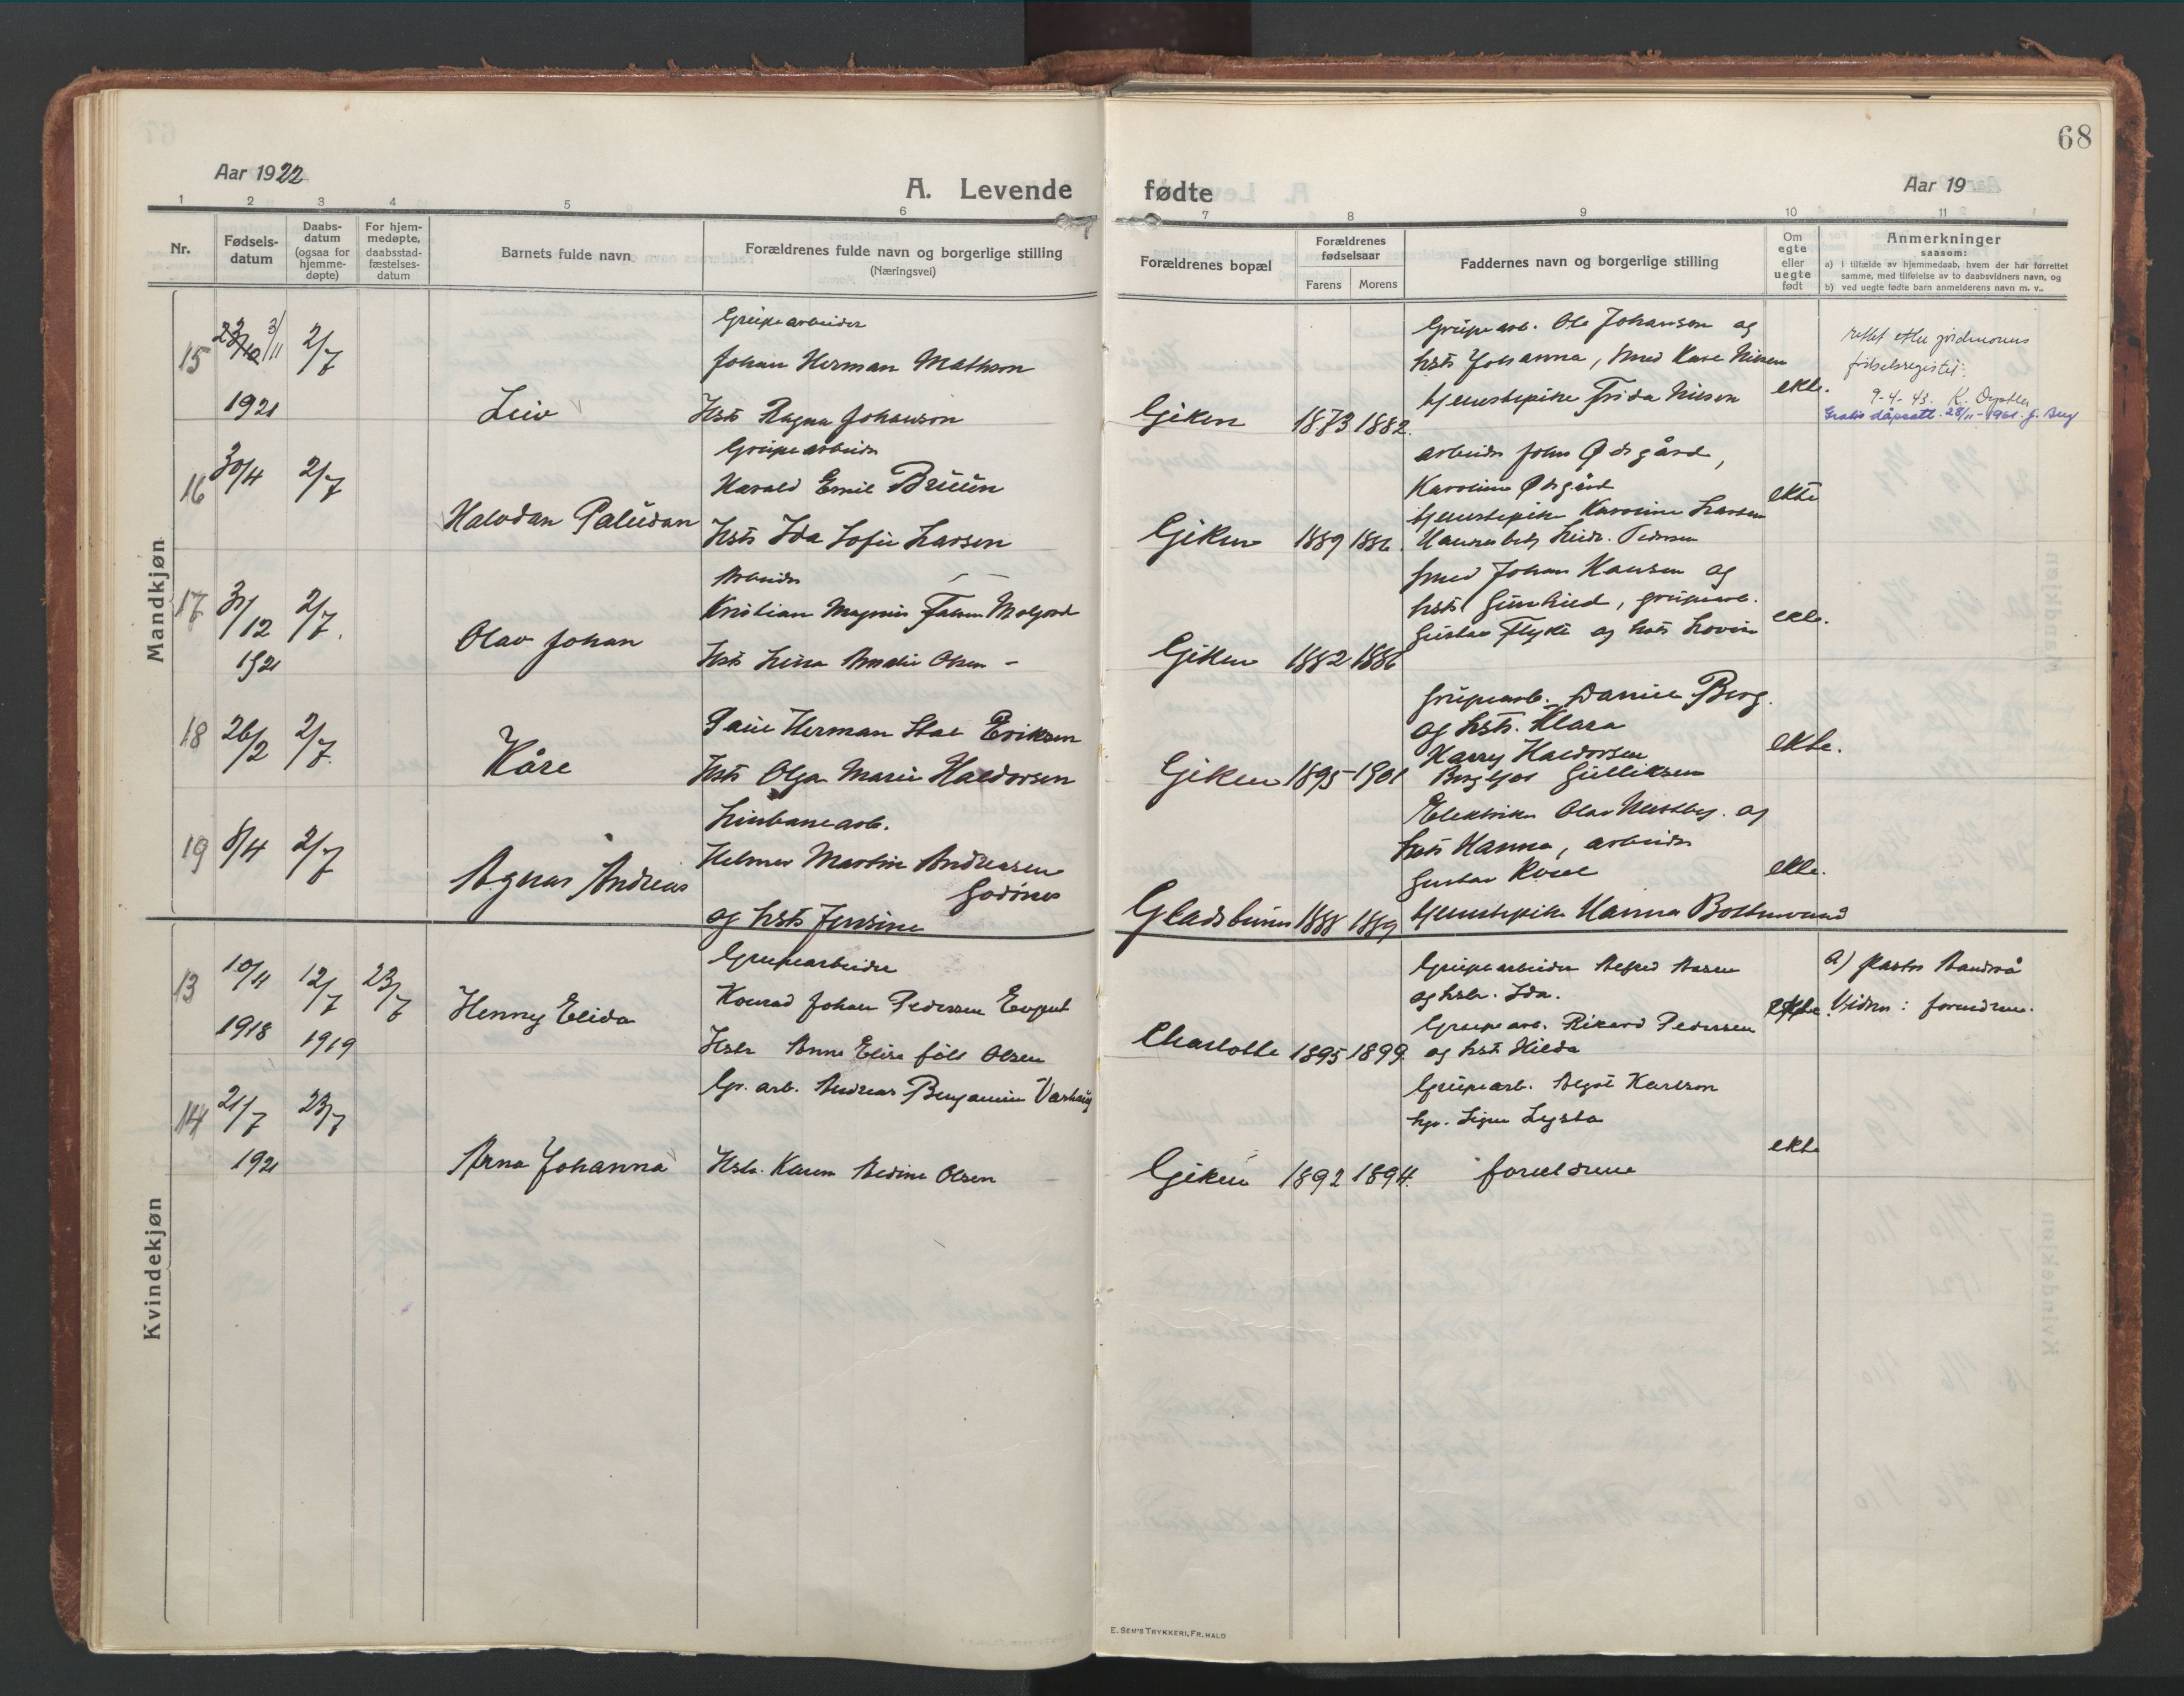 68
Aar 1922
A. Levende
fødte
Aar 19
1 2 3 4 5 6 7 8 9 10 11
Nr.
Fødsels-
datum
Daabs-
datum
(ogsaa for
hjemme-
døpte)
For hjem-
medøpte,
daabsstad-
fæstelses-
datum
Barnets fulde navn
Forældrenes fulde navn og borgerlige stilling
(Næringsvei)
Forældrenes bopæl
Forældrenes
fødselsaar
Farens Morens
Faddernes navn og borgerlige stilling
Om
egte
eller
uegte
født
Anmerkninger
saasom:
a) i tilfælde av hjemmedaab, hvem der har forrettet
samme, med tilføielse av to daabsvidners navn, og
b) ved uegte fødte barn anmelderens navn m. v..
Mandkjøn
15
3/11
1921
2/7
Leiv
Grubearbeider
Johan Herman Mathson
Hstr Ragna Johanson
Giken
1873 1882.
Grubearb. Ole Johansen og
hstr Johanna, smed Kare Nilsen
tjenestepike Frida Nilsen
ekte.
rettet etter jordmorens
fødselsregister.
9-4-43.
Gratis dåpsatt. 28/11-1961. J. Berg
16
30/4
2/7
Halvdan Paludan
Grubearbeider
Harald Emil Bruun
Hstr Ida Sofie Larsen
Giken
1889 1886.
arbeider John Ødegård,
Karoline Ødegård
tjenestepike Karoline Larsen
Pedersen
ekte
17
31/12
1921
2/7.
Olav Johan
Arbeider
Kristian Magnus Falsen Molgord
Hstr Lina Amalie Olsen -
Giken
1882 1886
smed Johan Hansen og
hstr Gunhild, grubearb.
Gustav Flykt og hstr Lovise
ekte.
18
26/2
2/7.
Kåre
Paul Herman Stal Eriksen
Hstr Olga Marie Haldorsen
Giken
1895 1901
Grubearb. Daniel Berg.
og hstr. Klara
Harry Haldorsen
Bergljot Gulliksen
ekte.
19
8/4
2/7
Agnar Andreas
Linbanearb.
Helmer Martin Andreassen
Godönes
og hstr Jensine
Gladsbunn
1888 1889
Elektriker Olav Hustby. og
hstr Hanna, arbeider
Gustav
tjenestepike Hanna
ekte.
Kvindekjøn
13
10/11
1918
12/7
1919
23/7
Henny Elida
Grubearbeider
Konrad Johan Pedersen
Hstr Anna Elise født Olsen
Charlotte
1895 1899.
Grubearbeider Alfred Aasen
og hstr. Ida.
Grubearb. Rikard Pedersen
og hstr Hilda
ekte.
a) Pastor
Vidner: foreldrene.
14
21/7
1921
23/7
Arna Johanna
Gr. arb. Andreas Benjamin Varhaug
Hstr. Karen Aldine Olsen
Giken
1892 1894.
Grubearb. Algot Karlson
hp. Signe Lysta
foreldrene
ekte
E. SEM'S TRYKKERI, FR.HALD